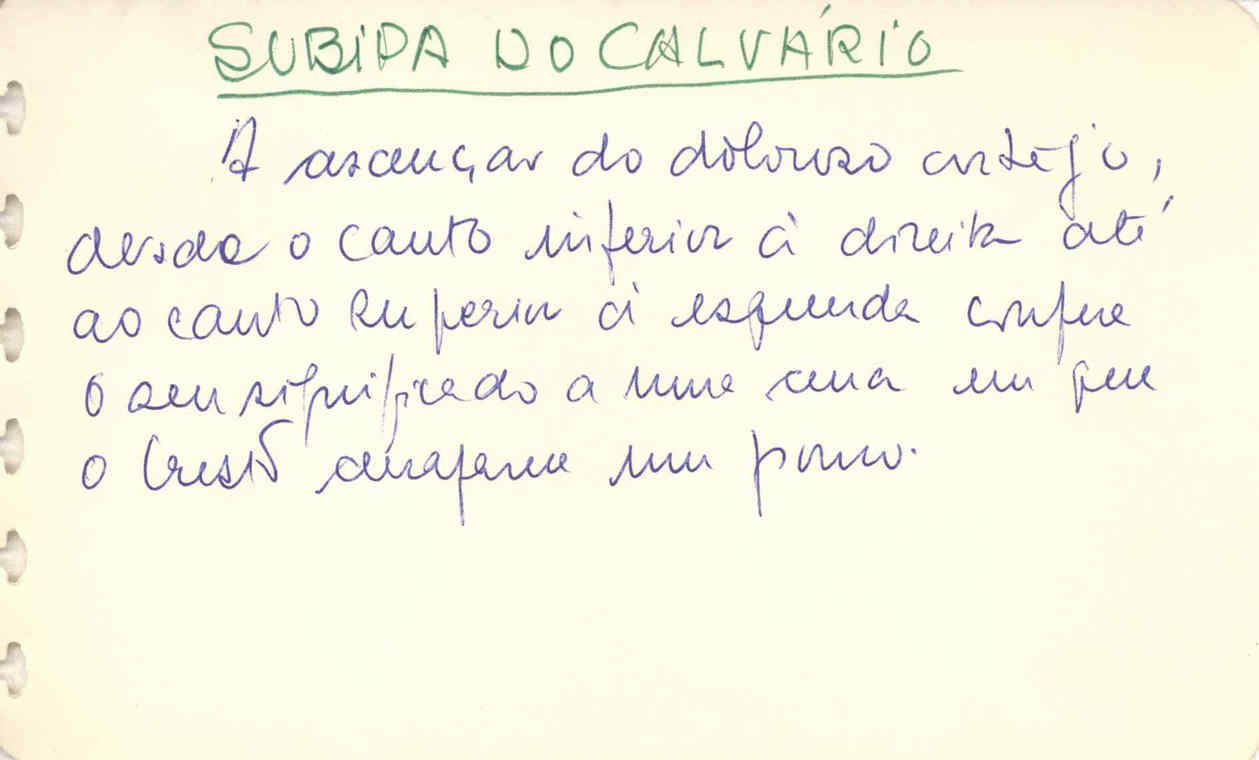 SUBIDA DO CALVÁRIO
A ascenção do doloroso cortejo,
desde o canto inferior à direita até
ao canto superior à esquerda confere
o seu significado a uma cena em que
o Cristo um pouco.